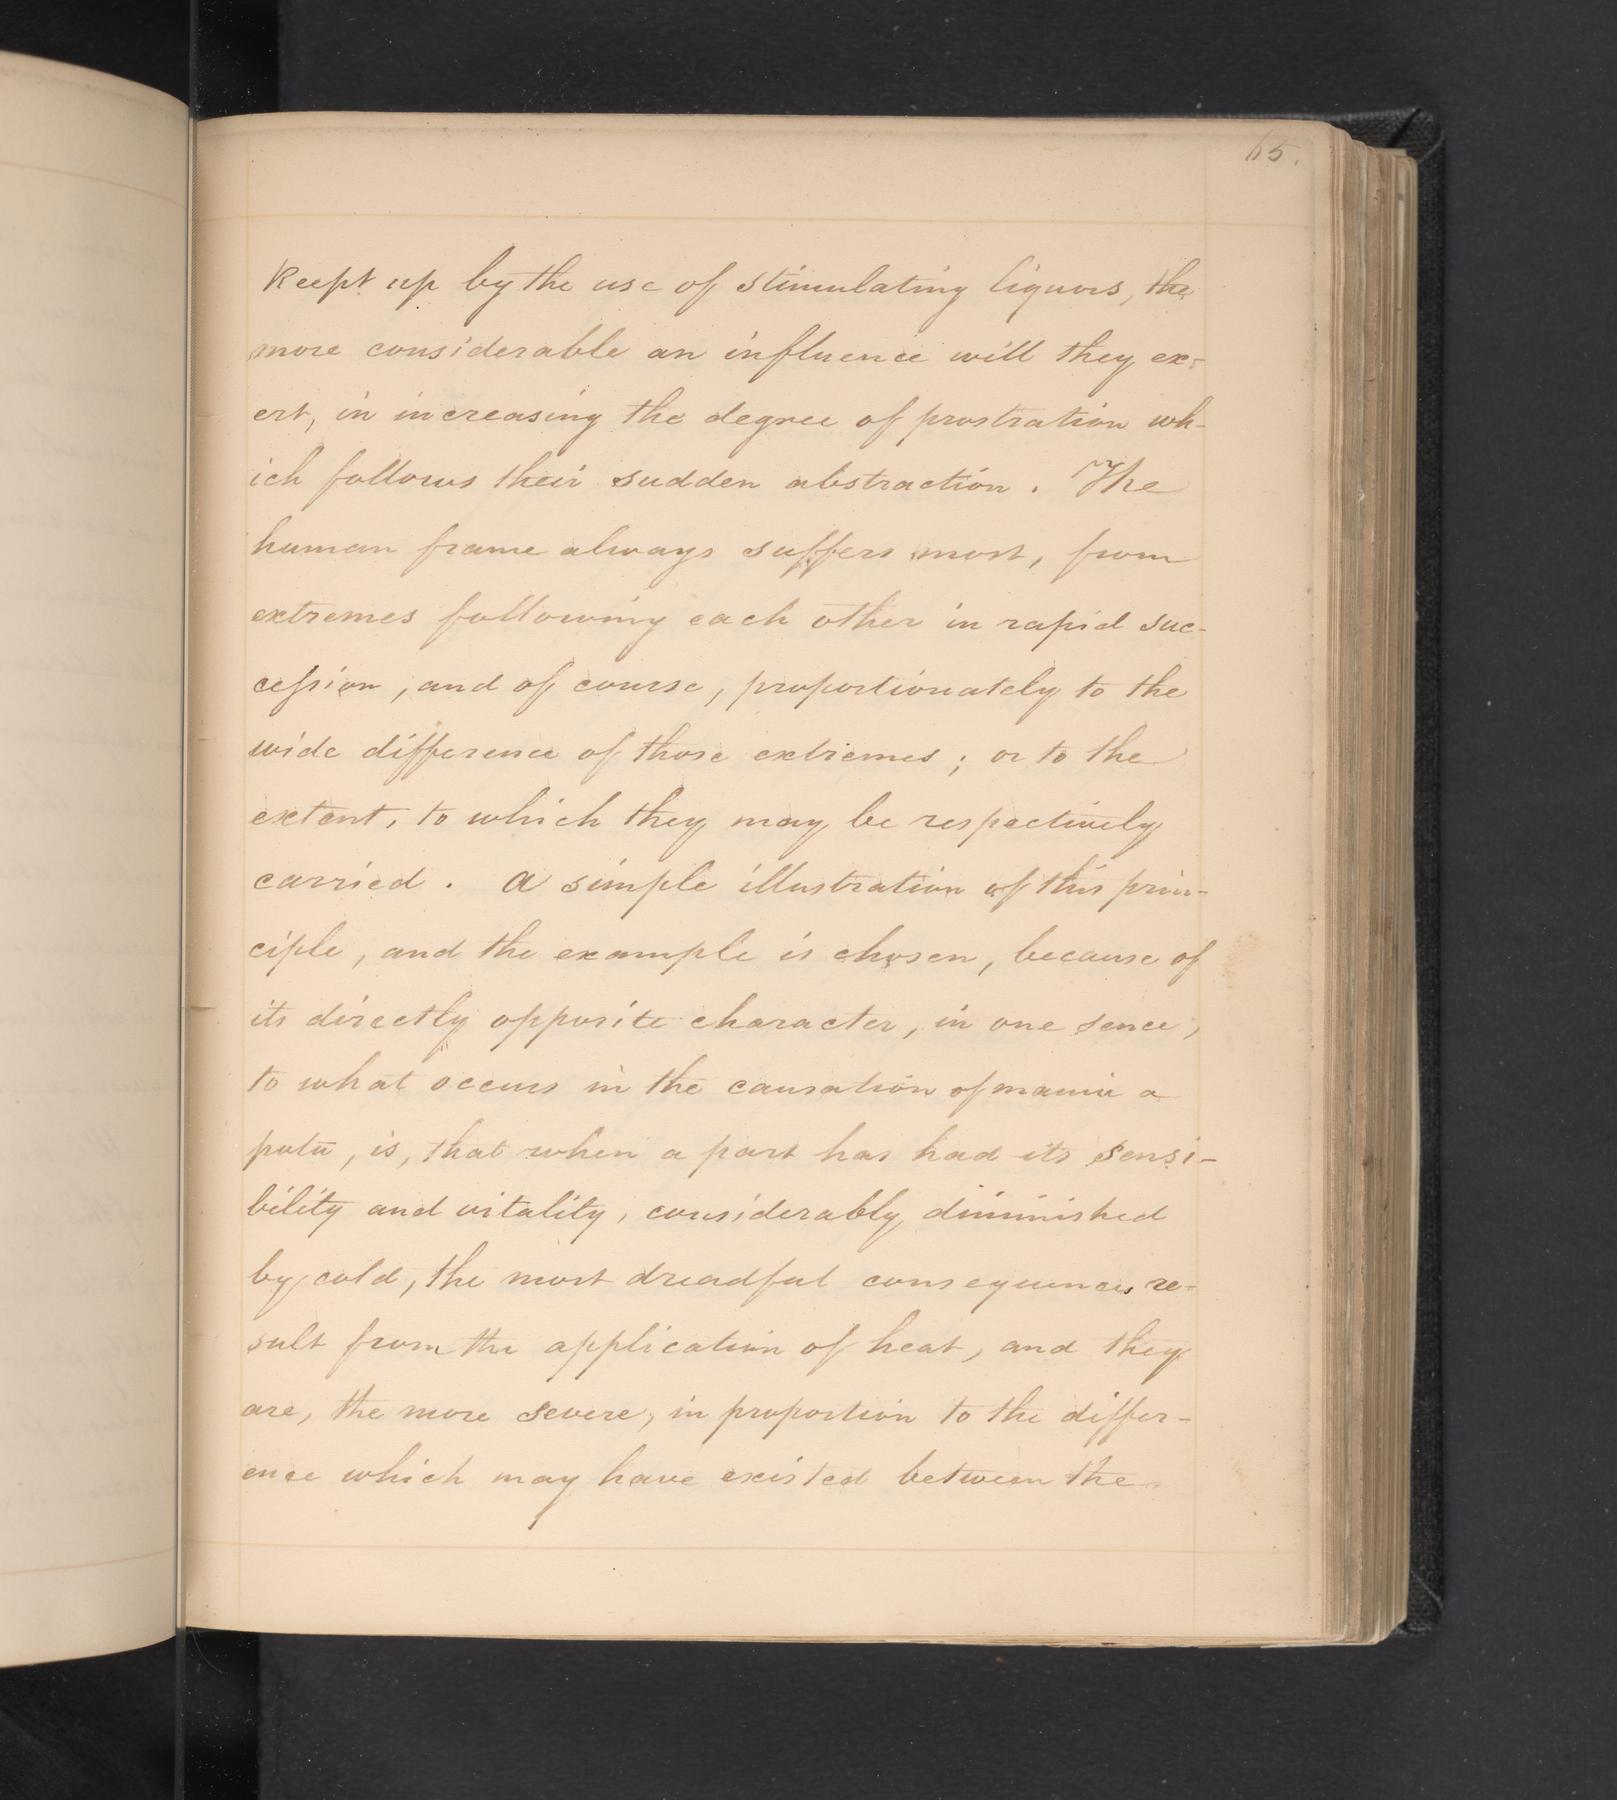 65.
Keept up by the use of stimulating liquors, the
more considerable an influence will they ex-
ert, in increasing the degree of prostration wh-
ich follows their sudden abstraction. The
human frame always suffers most, from
extremes following each other in rapid suc-
cession, and of course, proportionately to the
wide difference of those extremes; or to the
extent, to which they may be respectively
carried. A simple illustration of this prin-
ciple, and the example is chosen, because of
its directly opposite character, in one sence,
to what occurs in the causation of mania a
potu, is, that when a part has had its sensi-
bility and vitality, considerably diminished
by cold, the most dreadful consequences re-
sult from the application of heat, and they
are, the more severe, in proportion to the differ-
ence which may have existed between the